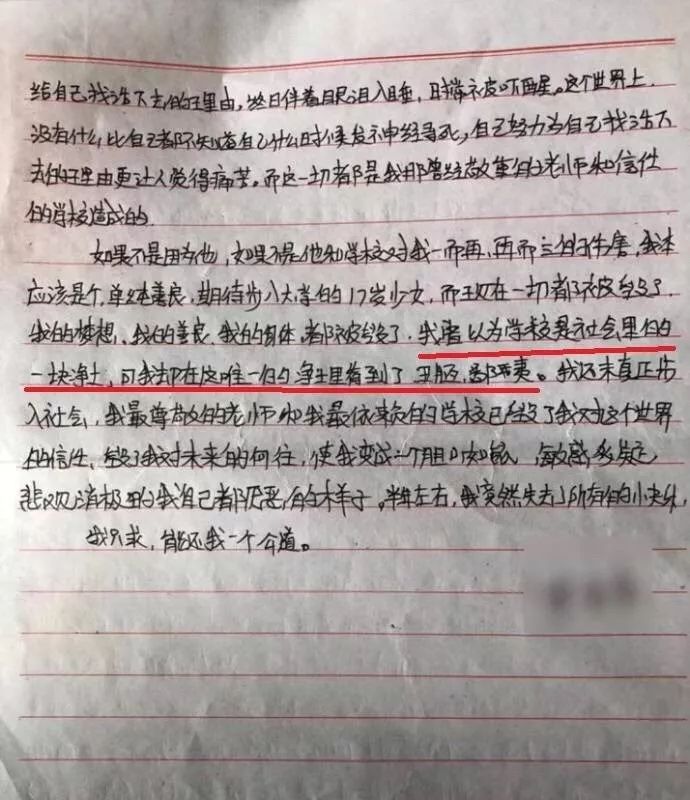 给自己找活下去的理由，终日伴着眼泪入睡，时常被吓醒。这个世界上
没有什么比自己都不知道自己什么时候发神经寻死，自己努力为自己找活下
去的理由更让人觉得痛苦。而这一切都是我那曾经敬重的老师和信任
的学校造成的
如果不是因为他，如果不是他和学校对我一而再，再而三的伤害，我本
应该是个单纯善良，期待步入大学的17岁少女，而现在一切都被毁了
我的梦想、我的善良、我的身体，都被毁了，我曾以为学校是社会里的
一块净土，可我却在这唯一的净土里看到了丑陋，龌龊。我还未真正步
入社会，我最尊敬的老师和我最依赖的学校已毁了我对这个世界
的信任、毁了我对未来的向往，使我变成一个胆小如鼠，敏感多疑
悲观消极的我自己都厌恶的样子。半年左右，我突然失去了所有的小美好，
我只求，能还我一个公道。